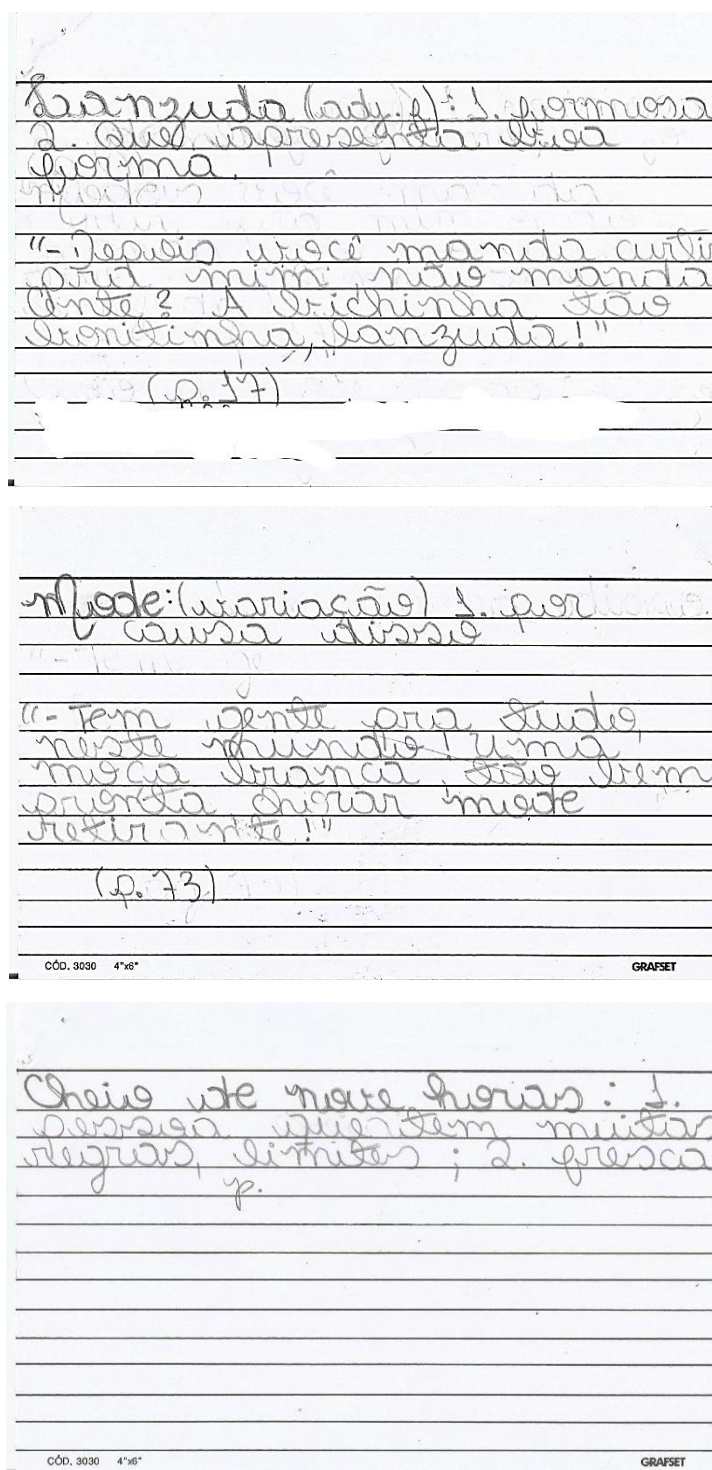 Lanzuda (adj. f): 1. formosa
2. Que apresenta boa
forma.
"- Depois você manda curtir
pra mim, não manda
Cente? A bichinha tão
bonitinha, lanzuda!"
(p. 17)
Mode: (variação) 1. por
causa disso
"- Tem gente pra tudo,
neste mundo! Uma
moça branca, tão bem
pronta chorar mode
retirante!"
(p. 73)
CÓD. 3030 4"x6" GRAFSET
Cheio de nove horas: 1.
pessoa que tem muitas
regras, limites; 2. fresca
p.
CÓD. 3030 4"x6" GRAFSET